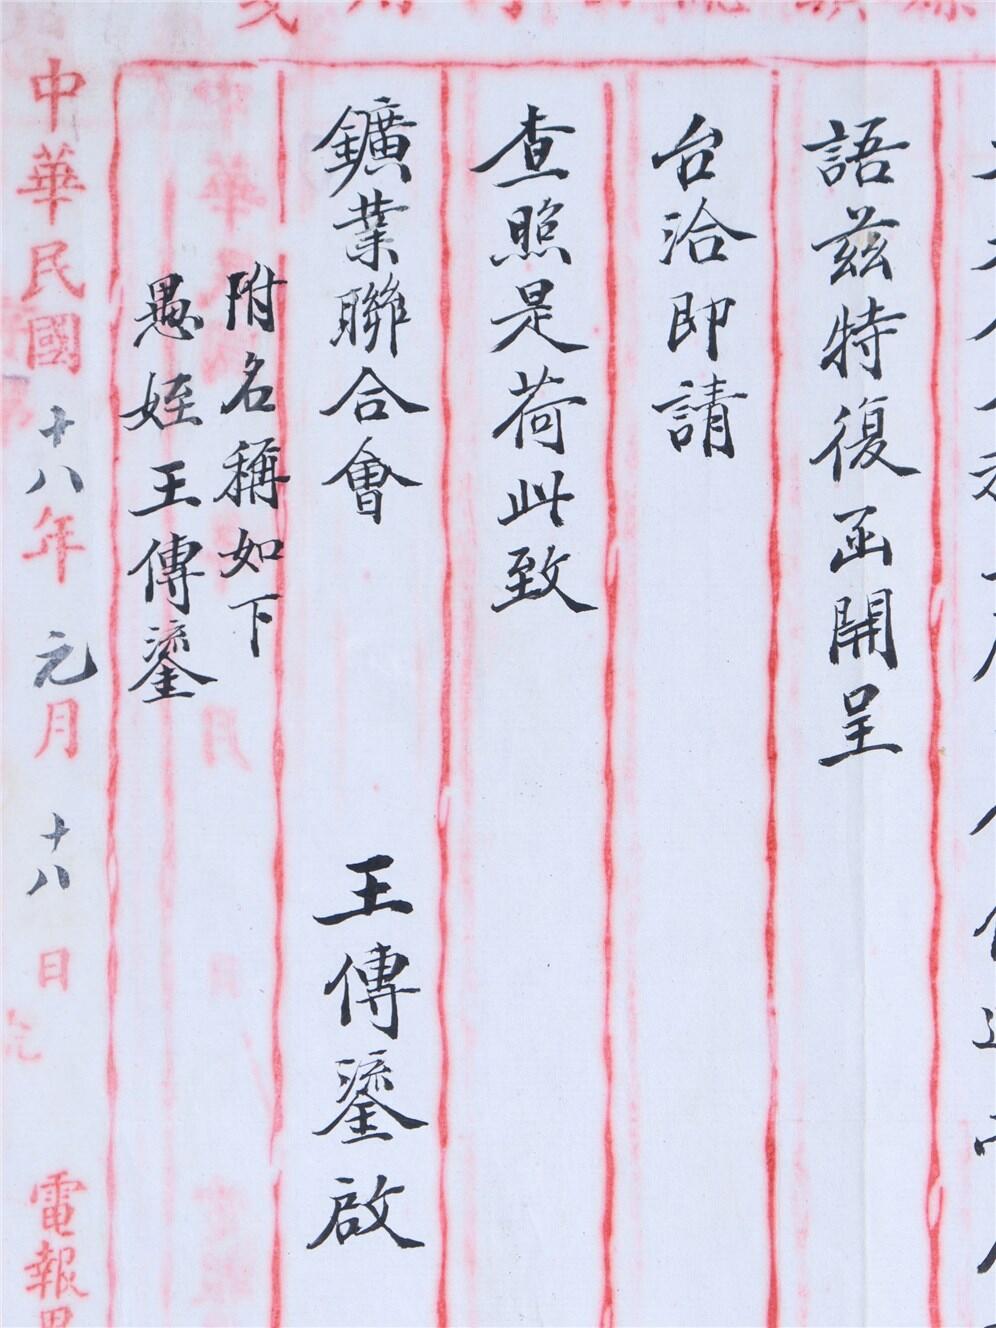 語茲特復函開呈
台洽即請
查照是荷此致
鑛業聯合會
王傳鎏啟
附名稱如下
愚姪王傳鎏
中華民國十八年元月十八日
電報